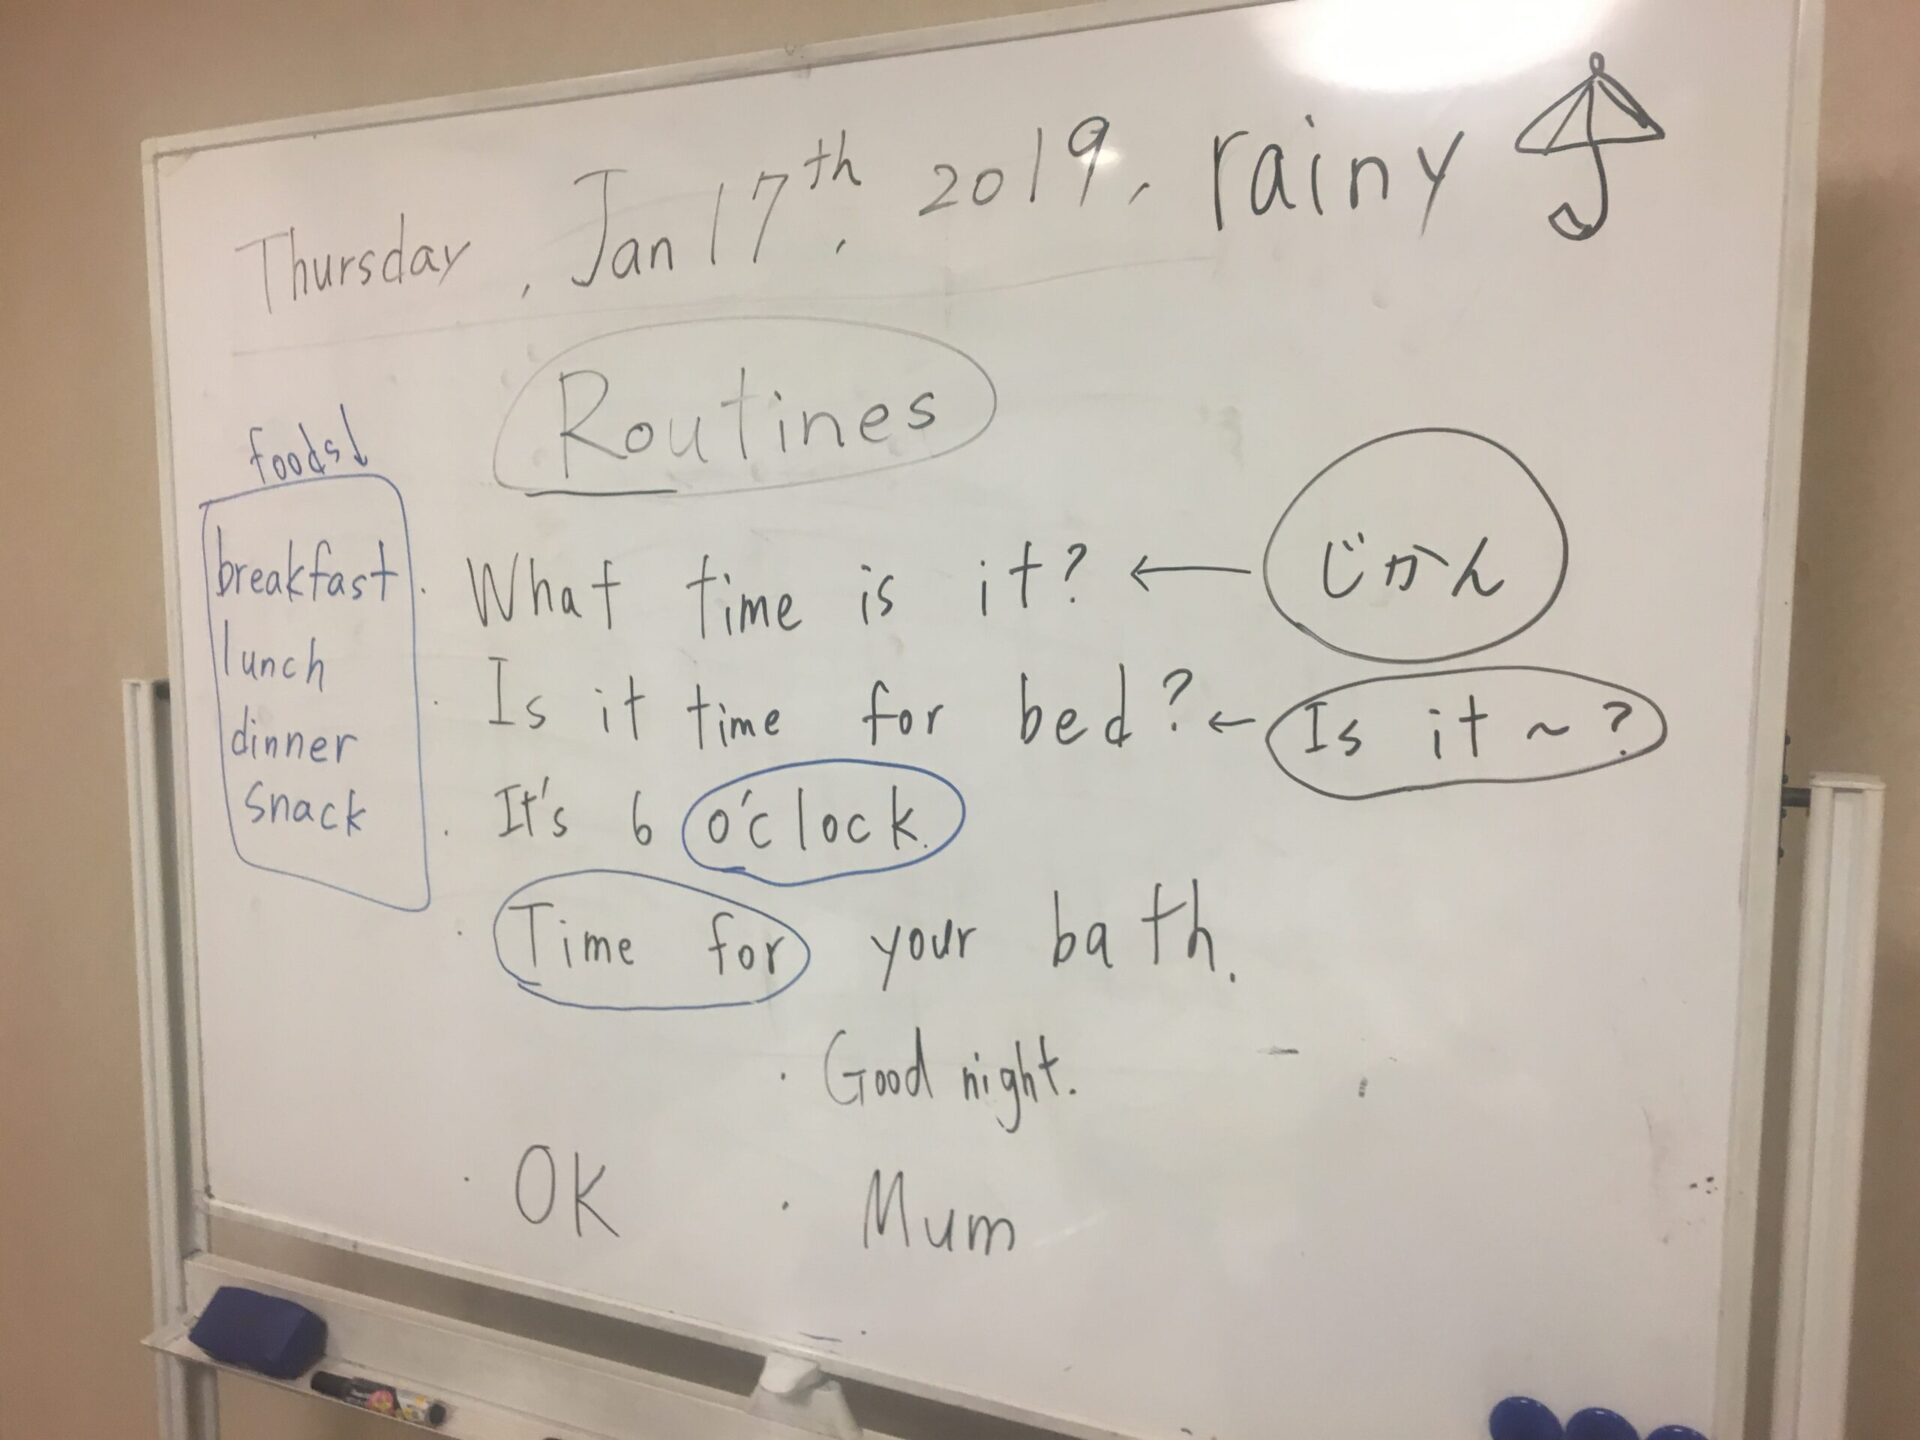 Thursday, Jan 17th, 2019, rainy
Routines
foods↓
breakfast
lunch
dinner
snack
· What time is it? ← じかん
· Is it time for bed? ← Is it ~ ?
· It's 6 o'clock.
· Time for your bath.
· Good night.
· OK · Mum